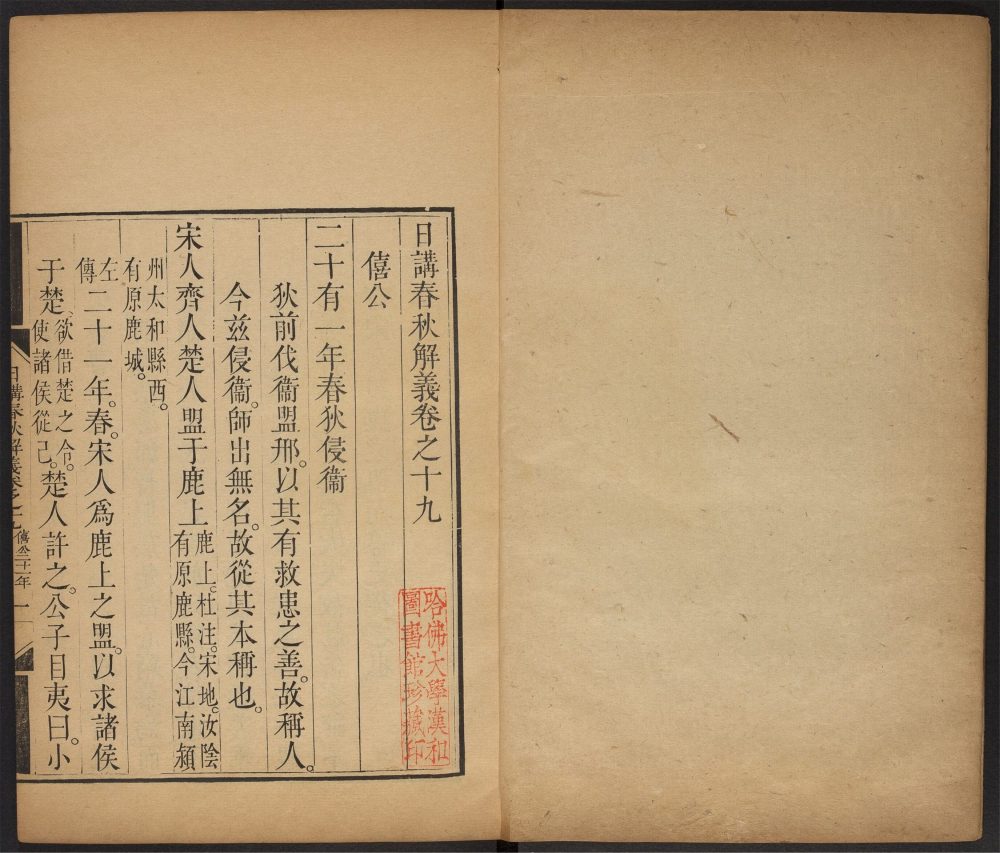 日講春秋解義卷之十九
哈佛大學漢和
圖書館珍藏印
僖公
二十有一年春狄侵衞
狄前伐衞盟邢。以其有救患之善。故稱人。
今茲侵衞。師出無名。故從其本稱也。
宋人齊人楚人盟于鹿上
鹿上。杜注。宋地。汝陰
有原鹿縣。今江南潁
州太和縣西。
有原鹿城。
左
傳
二十一年。春。宋人爲鹿上之盟。以求諸侯
于楚。
欲借楚之令。
使諸侯從己。
楚人許之。公子目夷曰。小
日講春秋解義卷之十九
僖公二十一年
一